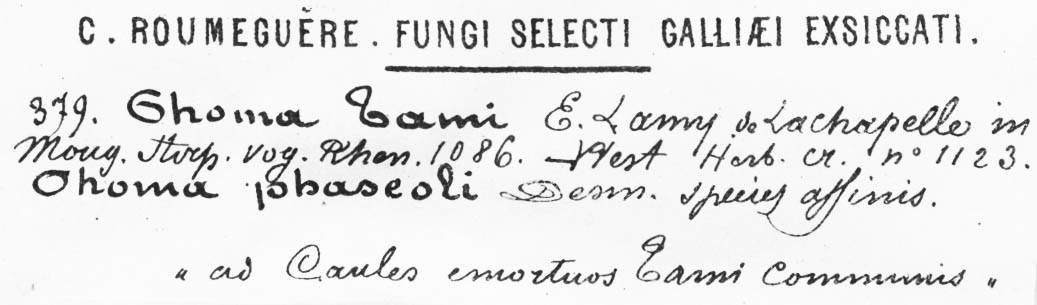 C. ROUMEGUÈRE. FUNGI SELECTI GALLIÆI EXSICCATI.
379. Phoma Tami E. Lamy de Lachapelle in
Moug. Stirp. Vog. Rhen. 1086. West Herb. cr. nº 1123.
Phoma phaseoli Desm. species affinis.
" ad Caules emortuos Tami communis "